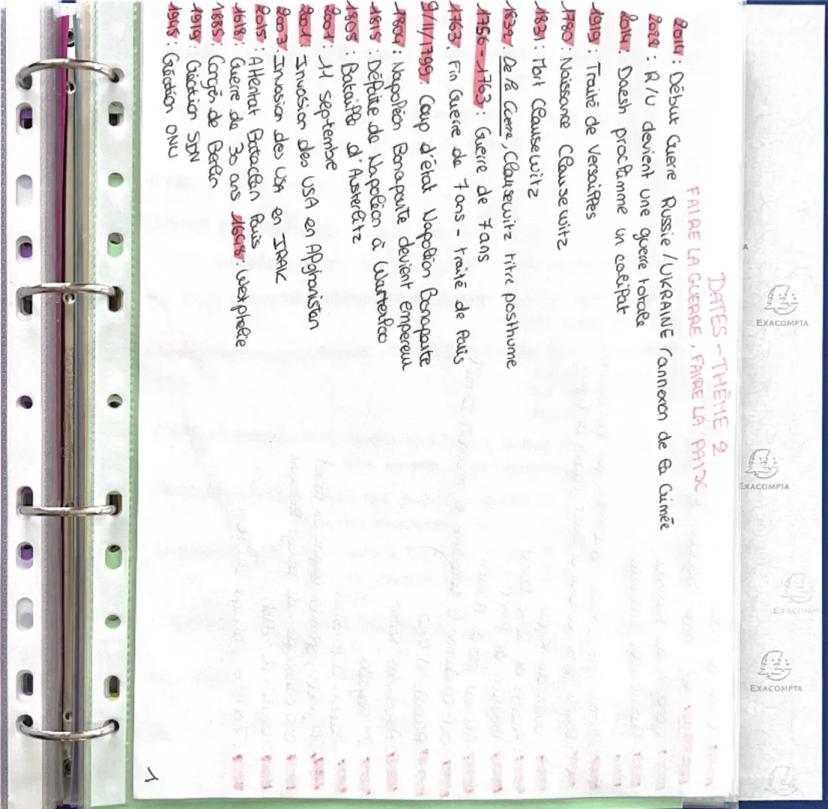 DATES - THÈME 2
FAIRE LA GUERRE, FAIRE LA PAIX,
2014 : Début Guerre Russie / UKRAINE (annexion de la Crimée
2022 : R/U devient une guerre totale
2014 Daesh proclamme un califat
1919 : Traité de Versailles
1780 Naissance Clausewitz
1831 : Mort Clausewitz
1832 De la Guerre, Clausewitz titre posthume
1756 - 1763 : Guerre de 7ans
1763. Fin Guerre de 7ans - traité de Paris
9/11/1799 : Coup d'état Napoléon Bonaparte
1804 Napoléon Bonaparte devient empereur
1815 : Défaite de Napoléon à Waterloo
1805 Bataille d'Austerlitz
2001. 11 septembre
2001 Invasion des USA en Afghanistan
2003 Invasion des USA en IRAK
2015 : Attentat Bataclan Paris
1618 Guerre de 30 ans 1648 : Westphalie
1885 : Congrès de Berlin
1919 : Création SDN
1945 : Création ONU
1
EXACOMPTA
EXACOMPTA
EXACOMPTA
EXACOMPTA